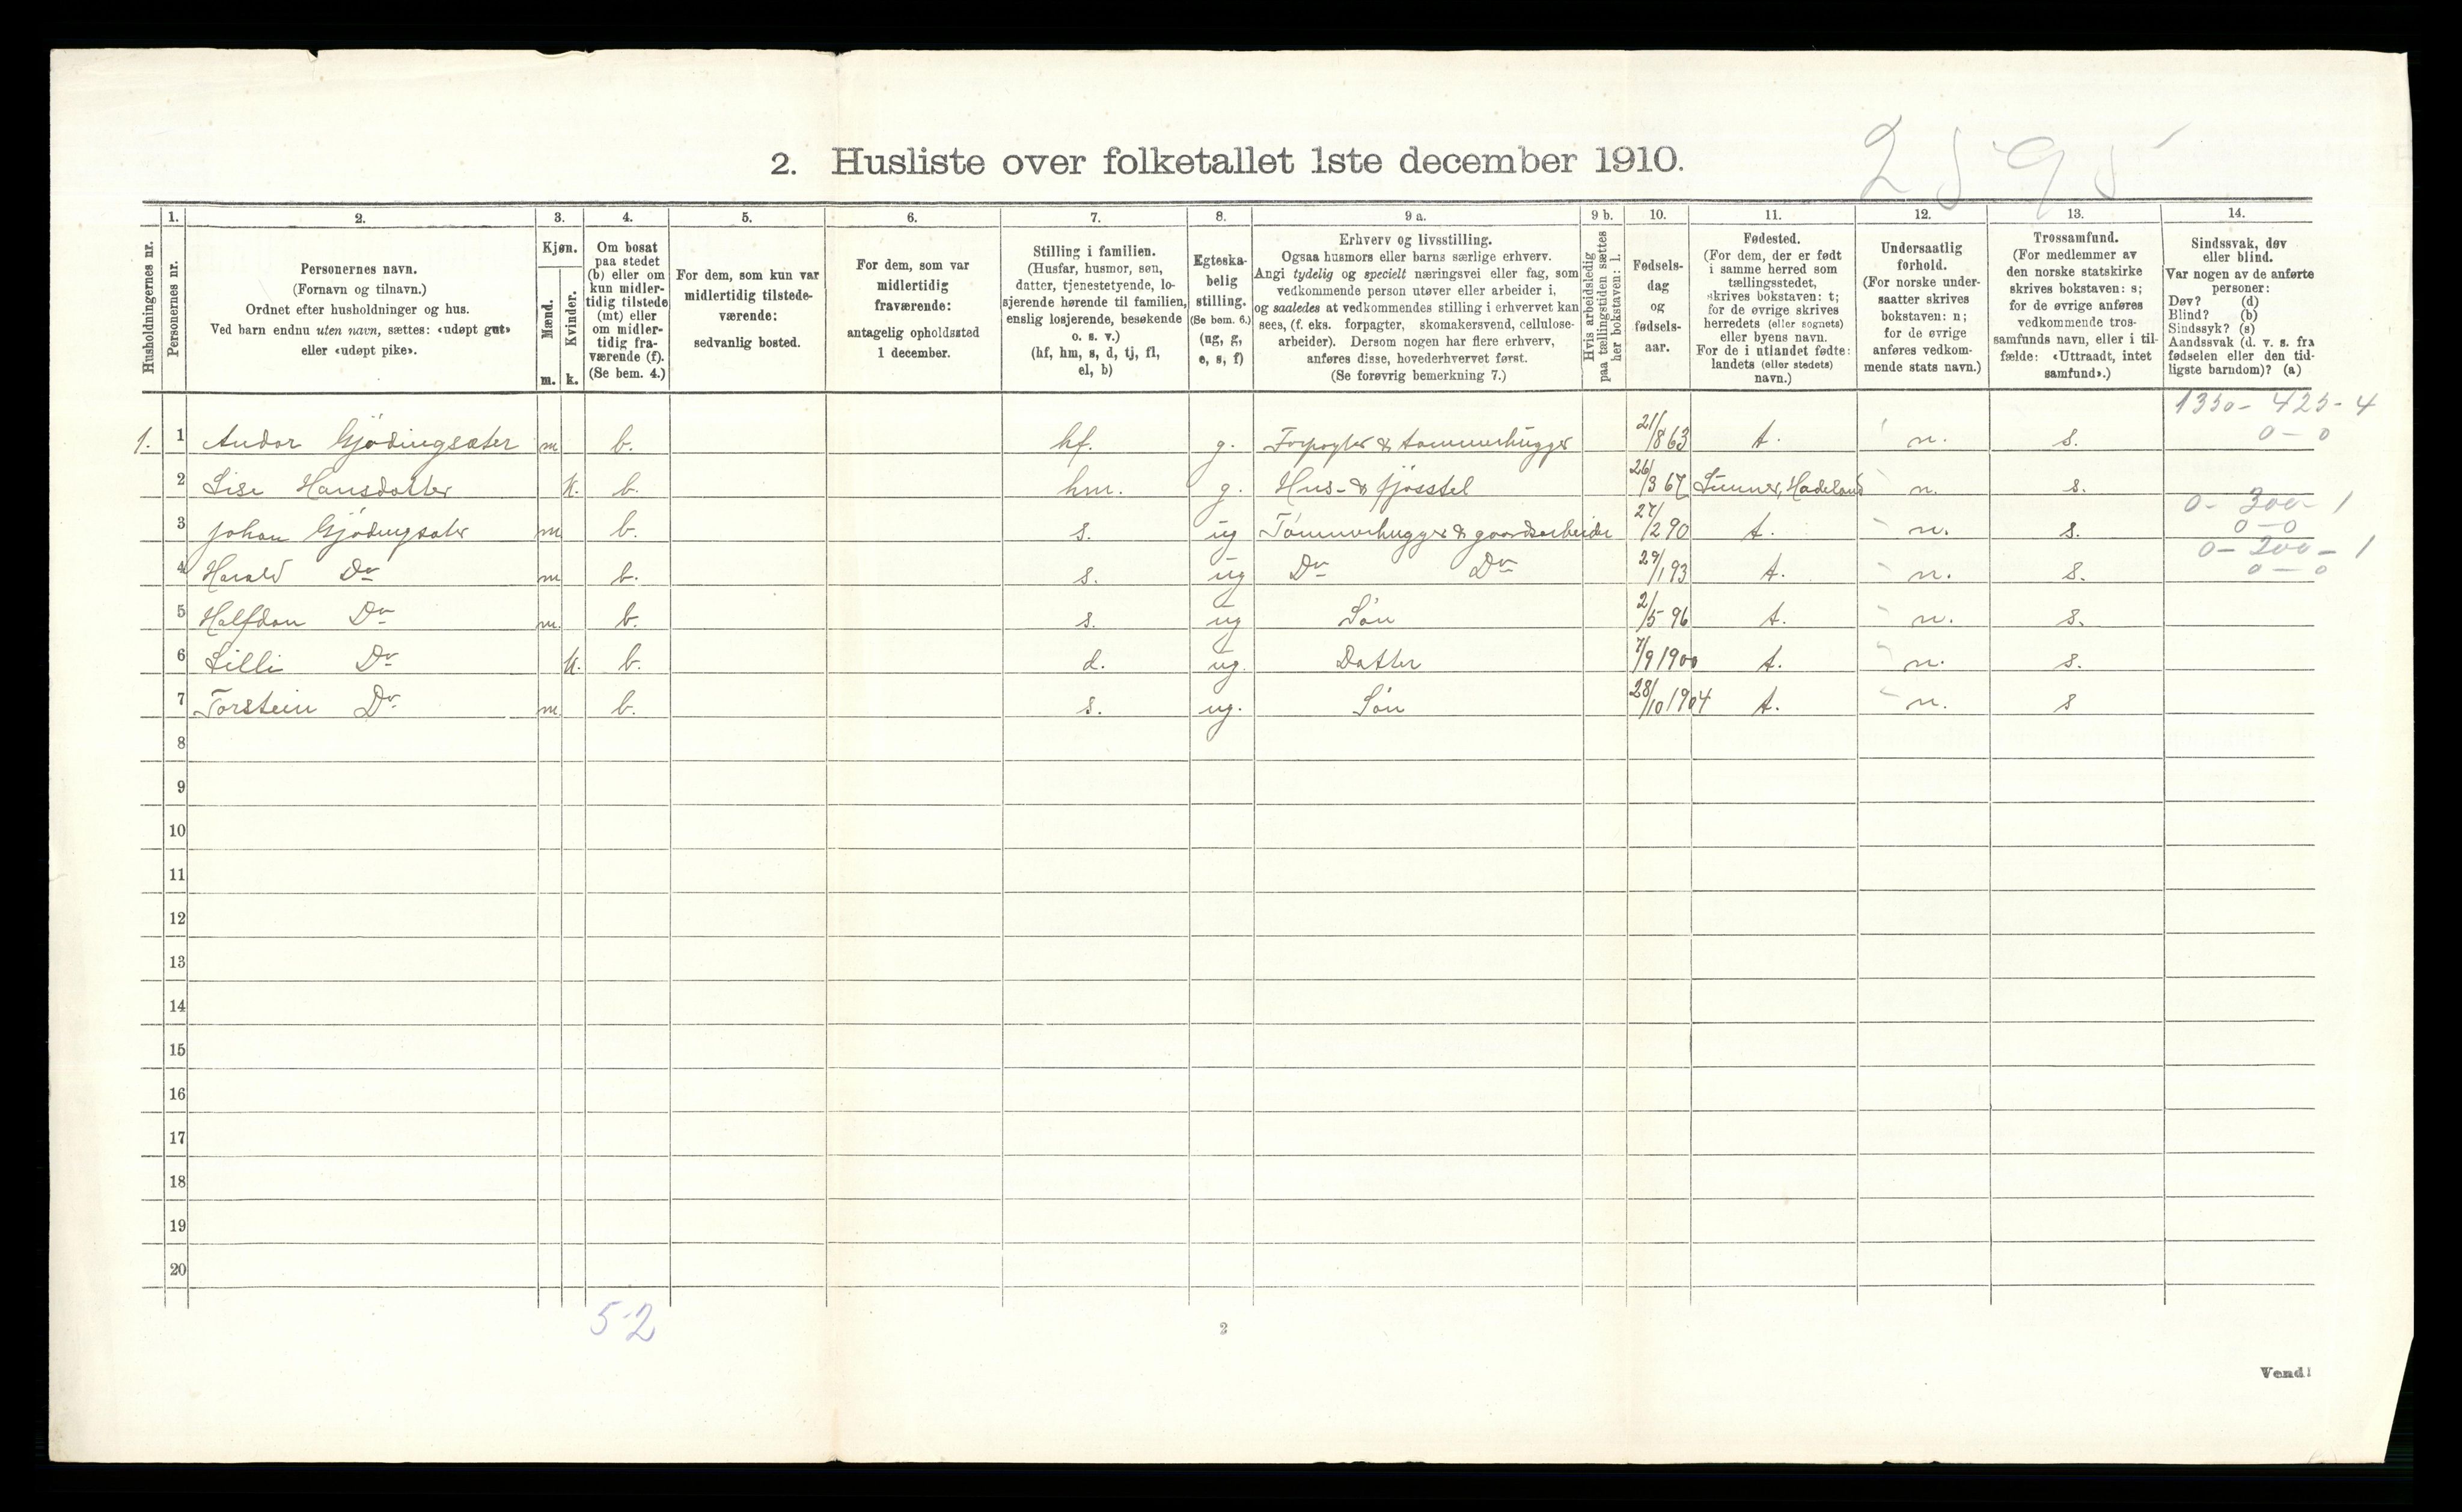 2595
2. Husliste over folketallet 1ste december 1910.
Husholdningernes nr.
1. Personernes nr.
2. Personernes navn. (Fornavn og tilnavn.) Ordnet efter husholdninger og hus. Ved barn endnu uten navn, sættes: «udøpt gut» eller «udøpt pike».
3. Kjøn. Mænd. m. Kvinder. k.
4. Om bosat paa stedet (b) eller om kun midlertidig tilstede (mt) eller om midlertidig fraværende (f). (Se bem. 4.)
5. For dem, som kun var midlertidig tilstedeværende: sedvanlig bosted.
6. For dem, som var midlertidig fraværende: antagelig opholdssted 1 december.
7. Stilling i familien. (Husfar, husmor, søn, datter, tjenestetyende, losjerende hørende til familien, enslig losjerende, besøkende o. s. v.) (hf, hm, s, d, tj, fl, el, b)
8. Egteskabelig stilling. (Se bem. 6.) (ug, g, e, s, f)
9 a. Erhverv og livsstilling. Ogsaa husmors eller barns særlige erhverv. Angi tydelig og specielt næringsvei eller fag, som vedkommende person utøver eller arbeider i, og saaledes at vedkommendes stilling i erhvervet kan sees, (f. eks. forpagter, skomakersvend, cellulosearbeider). Dersom nogen har flere erhverv, anføres disse, hovederhvervet først. (Se forøvrig bemerkning 7.)
9 b. Hvis arbeidsledig paa tællingstiden sættes her bokstaven: l.
10. Fødselsdag og fødselsaar.
11. Fødested. (For dem, der er født i samme herred som tællingsstedet, skrives bokstaven: t; for de øvrige skrives herredets (eller sognets) eller byens navn. For de i utlandet fødte: landets (eller stedets) navn.)
12. Undersaatlig forhold. (For norske undersaatter skrives bokstaven: n; for de øvrige anføres vedkommende stats navn.)
13. Trossamfund. (For medlemmer av den norske statskirke skrives bokstaven: s; for de øvrige anføres vedkommende trossamfunds navn, eller i tilfælde: «Uttraadt, intet samfund».)
14. Sindssvak, døv eller blind. Var nogen av de anførte personer: Døv? (d) Blind? (b) Sindssyk? (s) Aandssvak (d. v. s. fra fødselen eller den tidligste barndom)? (a)
1350 - 425 - 4
1. 1 Andor Gjødingsæter m b. hf. g. Forpagter & tømmerhugger 21/8 63 t. n. s. 0 - 0
2 Lise Hansdatter k. b. hm. g. Hus- & fjøsstel 26/3 67 Lunner, Hadeland n. s.
0 - 300 - 1
3 Johan Gjødingsæter m b. s. ug Tømmerhugger & gaardsarbeider 27/2 90 t. n. s. 0 - 0
0 - 200 - 1
4 Harald Do m b. s. ug Do Do 29/1 93 t. n. s. 0 - 0
5 Halfdan Do m. b. s. ug Søn 2/5 96 t. n. s.
6 Lilli Do k. b. d. ug. Datter 7/9 1900 t. n. s.
7 Torstein Do m b. s. ug. Søn 28/10 1904 t. n. s
8
9
10
11
12
13
14
15
16
17
18
19
20
5-2
2
Vend!